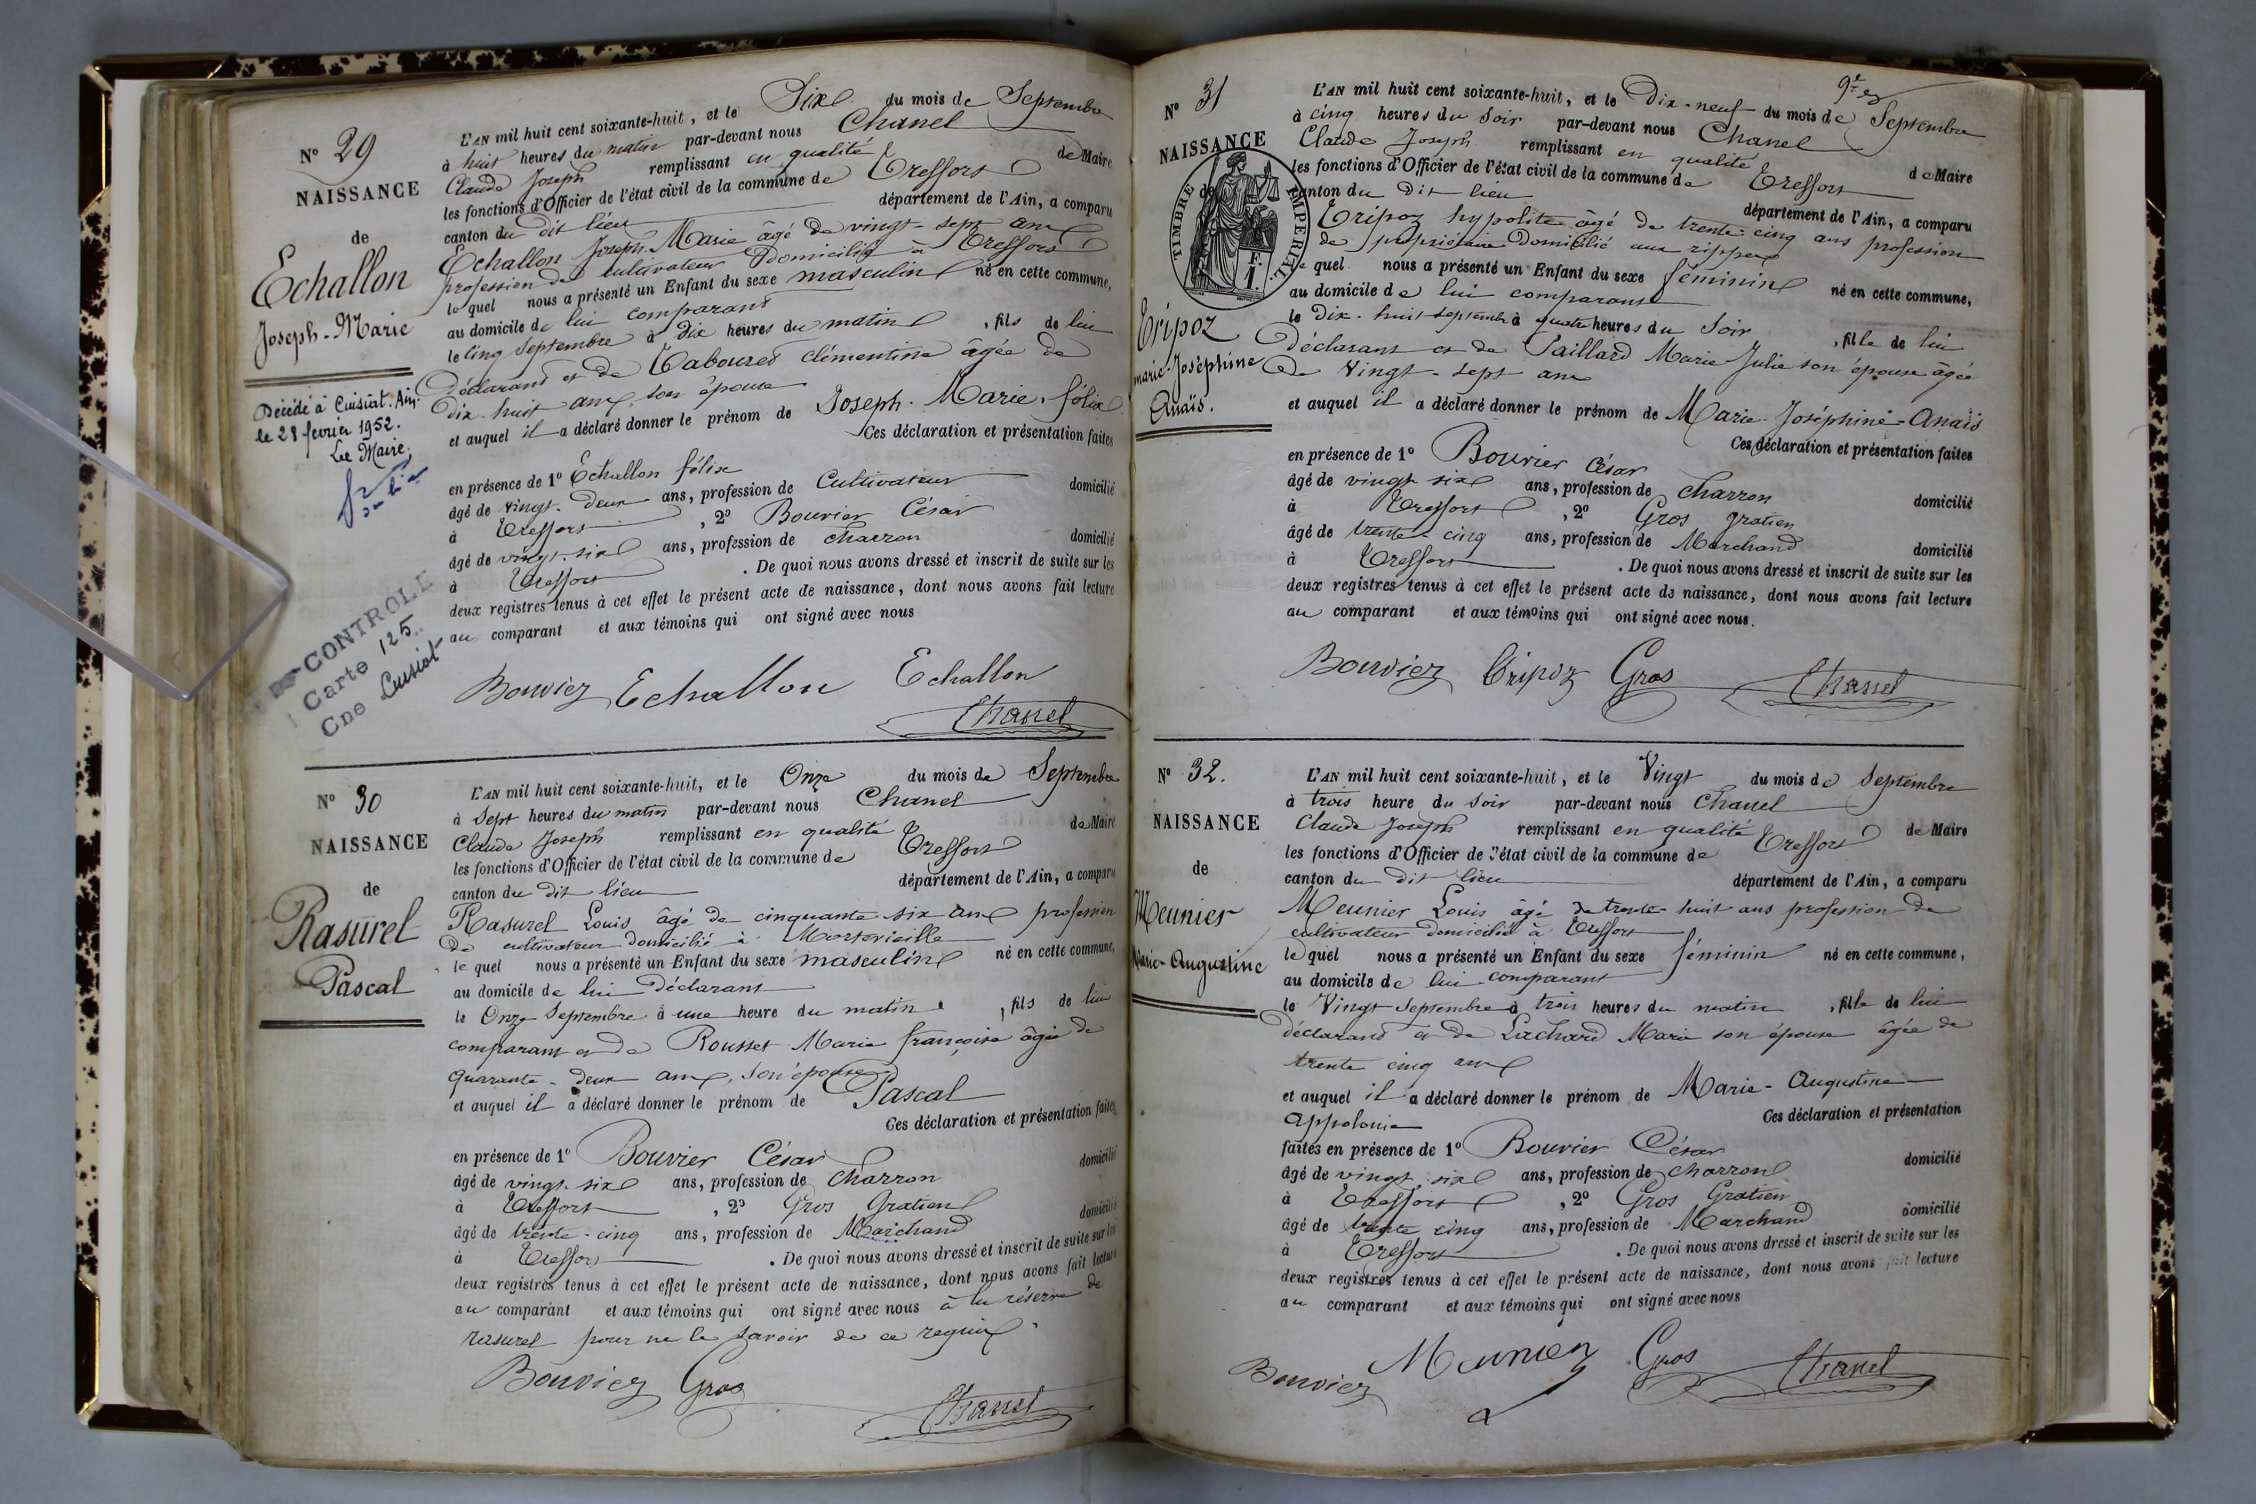 N° 29
NAISSANCE
de
Echallon
Joseph-Marie
Décédé à Cuisiat. Ain.
le 28 février 1952.
Le Maire,
CONTROLE
Carte 125
Cne Cuisiat
L'AN mil huit cent soixante-huit, et le Six du mois de Septembre
à huit heures du matin par-devant nous Chanel
Claude Joseph remplissant en qualité de Maire
les fonctions d'Officier de l'état civil de la commune de Treffort
canton du dit lieu département de l'Ain, a comparu
Echallon Joseph-Marie âgé de vingt-sept ans
profession de cultivateur domicilié à Treffort
le quel nous a présenté un Enfant du sexe masculin né en cette commune,
au domicile de lui comparant
le cinq Septembre à dix heures du matin, fils de lui
déclarant et de Tabouret clémentine âgée de
dix-huit ans, son épouse
et auquel il a déclaré donner le prénom de Joseph-Marie-félix
Ces déclaration et présentation faites
en présence de 1° Echallon félix
âgé de vingt-deux ans, profession de Cultivateur domicilié
à Treffort, 2° Bouvier César
âgé de vingt-six ans, profession de charron domicilié
à Treffort. De quoi nous avons dressé et inscrit de suite sur les
deux registres tenus à cet effet le présent acte de naissance, dont nous avons fait lecture
au comparant et aux témoins qui ont signé avec nous
Bouvier Echallon Echallon
Chanel
N° 30
NAISSANCE
de
Rasurel
Pascal
L'AN mil huit cent soixante-huit, et le Onze du mois de Septembre
à Sept heures du matin par-devant nous Chanel
Claude Joseph remplissant en qualité de Maire
les fonctions d'Officier de l'état civil de la commune de Treffort
canton du dit lieu département de l'Ain, a comparu
Rasurel Louis âgé de cinquante-six ans profession
de cultivateur domicilié à Mortevieille
le quel nous a présenté un Enfant du sexe masculin né en cette commune,
au domicile de lui Déclarant
le Onze Septembre à une heure du matin, fils de lui
comparant et de Rousset Marie françoise âgée de
quarante-deux ans, son épouse
et auquel il a déclaré donner le prénom de Pascal
Ces déclaration et présentation faites
en présence de 1° Bouvier César
âgé de vingt-six ans, profession de charron domicilié
à Treffort, 2° Gros Gratien
âgé de trente-cinq ans, profession de Marchand domicilié
à Treffort. De quoi nous avons dressé et inscrit de suite sur les
deux registres tenus à cet effet le présent acte de naissance, dont nous avons fait lecture
au comparant et aux témoins qui ont signé avec nous à la réserve de
rasurel pour ne le savoir de ce requis
Bouvier Gros
Chanel
N° 31
NAISSANCE
de
TIMBRE IMPERIAL
1 F.
Tripoz
marie-Joséphine
Anaïs.
L'AN mil huit cent soixante-huit, et le Dix-neuf du mois de Septembre
à cinq heures du Soir par-devant nous Chanel
Claude Joseph remplissant en qualité de Maire
les fonctions d'Officier de l'état civil de la commune de Treffort
canton du dit lieu département de l'Ain, a comparu
Tripoz hypolite âgé de trente-cinq ans profession
de propriétaire Domicilié aux rippes
le quel nous a présenté un Enfant du sexe féminin né en cette commune,
au domicile de lui comparant
le dix-huit septembre à quatre heures du Soir, fille de lui
Déclarant et de Paillard Marie Julie son épouse âgée
de vingt-sept ans
et auquel il a déclaré donner le prénom de Marie-Joséphine-Anaïs
Ces déclaration et présentation faites
en présence de 1° Bouvier César
âgé de vingt-six ans, profession de charron domicilié
à Treffort, 2° Gros gratien
âgé de trente-cinq ans, profession de Marchand domicilié
à Treffort. De quoi nous avons dressé et inscrit de suite sur les
deux registres tenus à cet effet le présent acte de naissance, dont nous avons fait lecture
au comparant et aux témoins qui ont signé avec nous.
Bouvier Tripoz Gros Chanel
N° 32.
NAISSANCE
de
Meunier
Marie-Augustine
L'AN mil huit cent soixante-huit, et le Vingt du mois de Septembre
à trois heure du Soir par-devant nous Chanel
Claude Joseph remplissant en qualité de Maire
les fonctions d'Officier de l'état civil de la commune de Treffort
canton du dit lieu département de l'Ain, a comparu
Meunier Louis âgé de trente-huit ans profession de
cultivateur domicilié à Treffort
le quel nous a présenté un Enfant du sexe féminin né en cette commune,
au domicile de lui comparant
le Vingt Septembre à trois heures du matin, fille de lui
déclarant et de Lachard Marie son épouse âgée de
trente cinq ans
et auquel il a déclaré donner le prénom de Marie-Augustine
Appolonie Ces déclaration et présentation
faites en présence de 1° Bouvier César
âgé de vingt-six ans, profession de charron domicilié
à Treffort, 2° Gros Gratien
âgé de trente cinq ans, profession de Marchand domicilié
à Treffort. De quoi nous avons dressé et inscrit de suite sur les
deux registres tenus à cet effet le présent acte de naissance, dont nous avons fait lecture
au comparant et aux témoins qui ont signé avec nous
Bouvier Meunier Gros Chanel